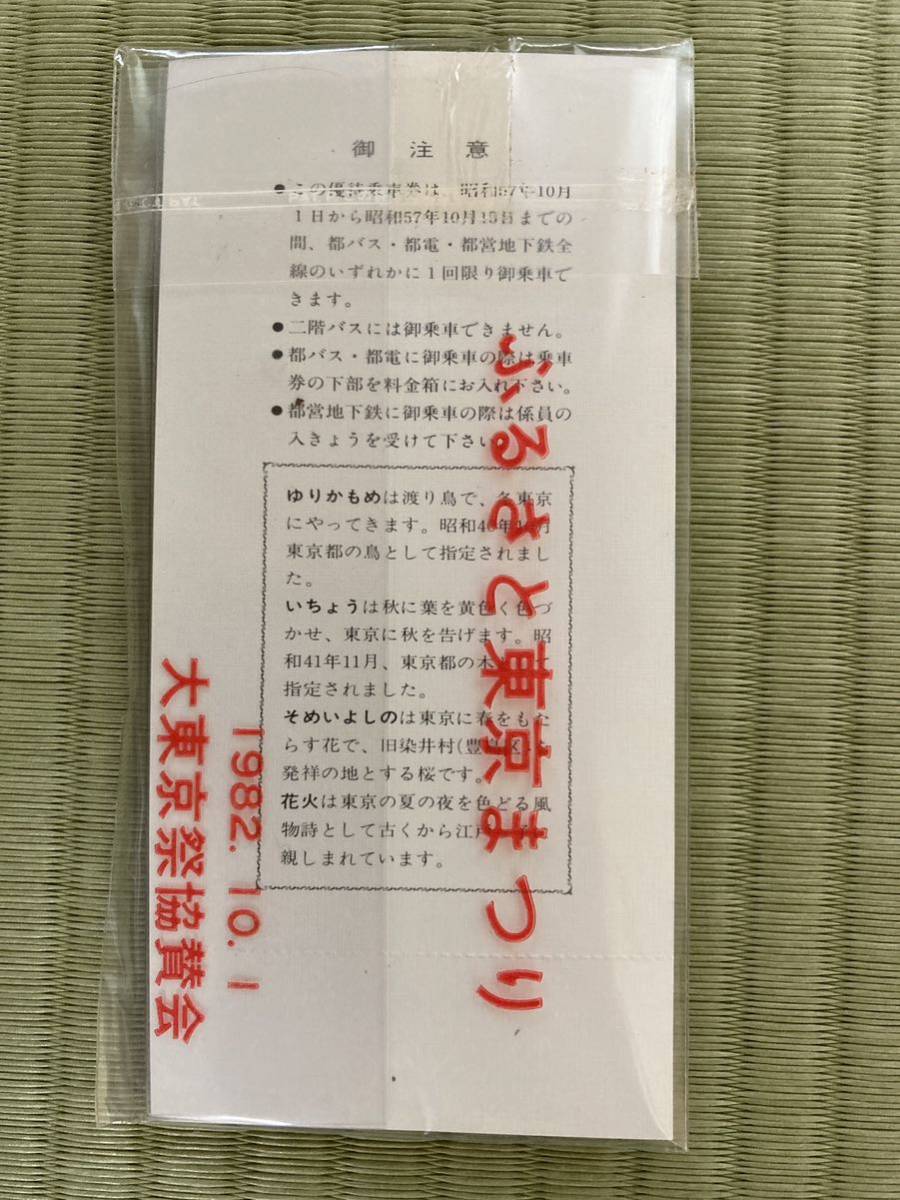 御注意
●この優待乗車券は、昭和57年10月
1日から昭和57年10月15日までの
間、都バス・都電・都営地下鉄全
線のいずれかに1回限り御乗車で
きます。
●二階バスには御乗車できません。
●都バス・都電に御乗車の際は乗車
券の下部を料金箱にお入れ下さい。
●都営地下鉄に御乗車の際は係員の
入きょうを受けて下さい。
ゆりかもめは渡り鳥で、冬東京
にやってきます。昭和40年1月
東京都の鳥として指定されまし
た。
いちょうは秋に葉を黄色く色づ
かせ、東京に秋を告げます。昭
和41年11月、東京都の木 て
指定されました。
そめいよしのは東京に春をもた
らす花で、旧染井村(豊 区)
発祥の地とする桜です。
花火は東京の夏の夜を色どる風
物詩として古くから江戸
親しまれています。
ふるさと東京まつり
1982.10.1
大東京祭協賛会